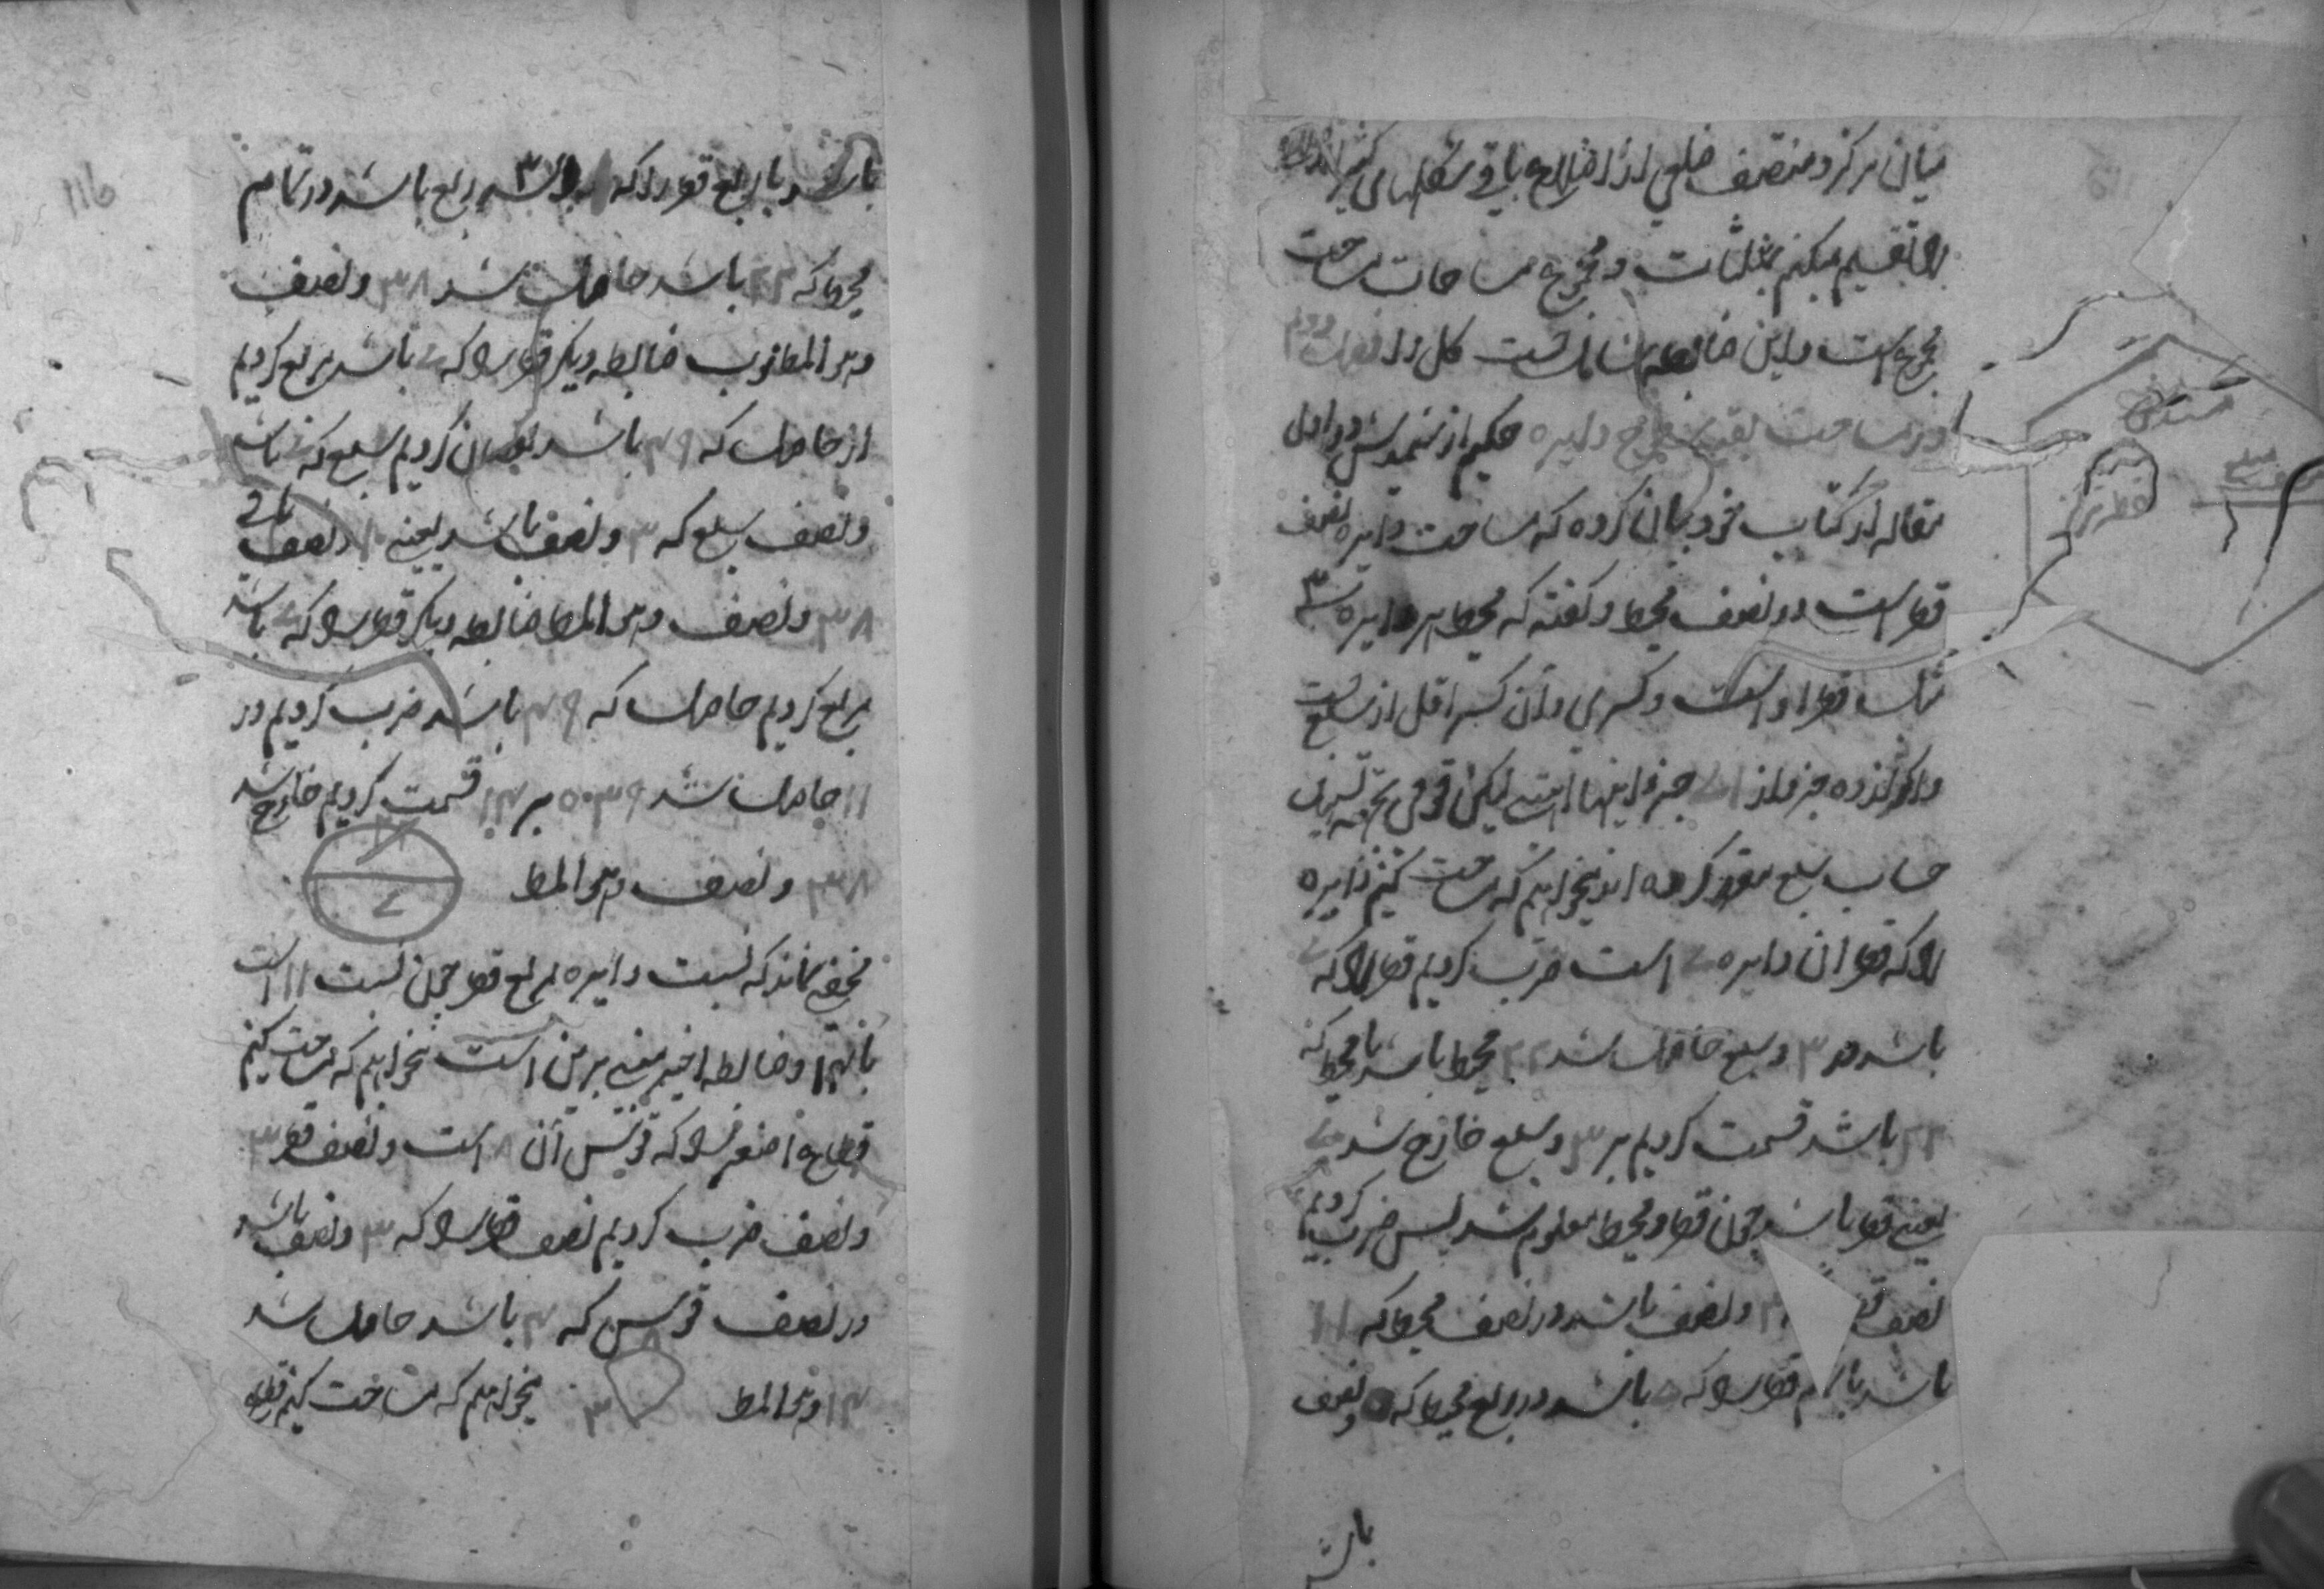 میان مرکز و منتصف ضلعی از اضلاع باقی شکلهای کثیر
را تقسیم میکنیم بمثلثات و مجموع مساحات مساحت
مجموع است و این ضابطه شامل است کل را فصل دوم
در مساحت بقیه سطوح دایره حکیم ارشمیدش در اول
مقاله از کتاب خود بیان کرده که مساحت دایره نصف
قطر است در نصف محیط و گفته که محیط هر دایره سه
مثل قطر او است و کسری و آن کسر اقل از سبع است
و از ده جزو از ۷۱ جزو است لیکن قوم بجهة
حساب سبع مقرر کرده اند میخواهیم که مساحت کنیم دایره
را که قطر آن دایره ۷ است ضرب کردیم قطر را که ۷
باشد در ۳ و سبع حاصل شد ۲۲ محیط باشد یا محیط که
۲۲ باشد قسمت کردیم بر ۳ و سبع خارج شد ۷
یعنی قطر باشد چون قطر و محیط معلوم شد پس ضرب کردیم
نصف ۳ و نصف باشد در نصف محیط که ۱۱
باشد یا قطر را که ۷ باشد در ربع محیط که ۵ و نصف
باشد
116
باشد یا ربع قطر را که ۱ و سه ربع باشد در تمام
محیط که ۲۲ باشد حاصل شد ۳۸ و نصف
و هو المطلوب ضابطه دیگر قطر را که ۷ باشد مربع کردیم
از حاصل که ۴۹ باشد نقصان کردیم سبع که ۷ باشد
و نصف سبع که ۳ و نصف باشد یعنی ۱۰ و نصف باقی
۳۸ و نصف و هو المط ضابطه دیگر قطر را که ۷ باشد
مربع کردیم حاصل که ۴۹ باشد ضرب کردیم در
۱۱ حاصل شد ۵۳۹ بر ۱۴ قسمت کردیم خارج شد
۳۸ و نصف و هو المط
۲۲
۷
مخفی نماند که نسبت دایره بمربع قطر چون نسبت ۱۱ است
با ۱۴ و ضابطه اخیر مبنی بر من است میخواهیم که مساحت کنیم
قطاع اصغر را که قوس آن ۸ است و نصف قطر ۳
و نصف ضرب کردیم نصف قطر را که ۳ و نصف باشد
در نصف قوس که ۴ باشد حاصل شد
۱۴ و هو المط میخواهیم که مساحت کنیم قطاع
۸
۳